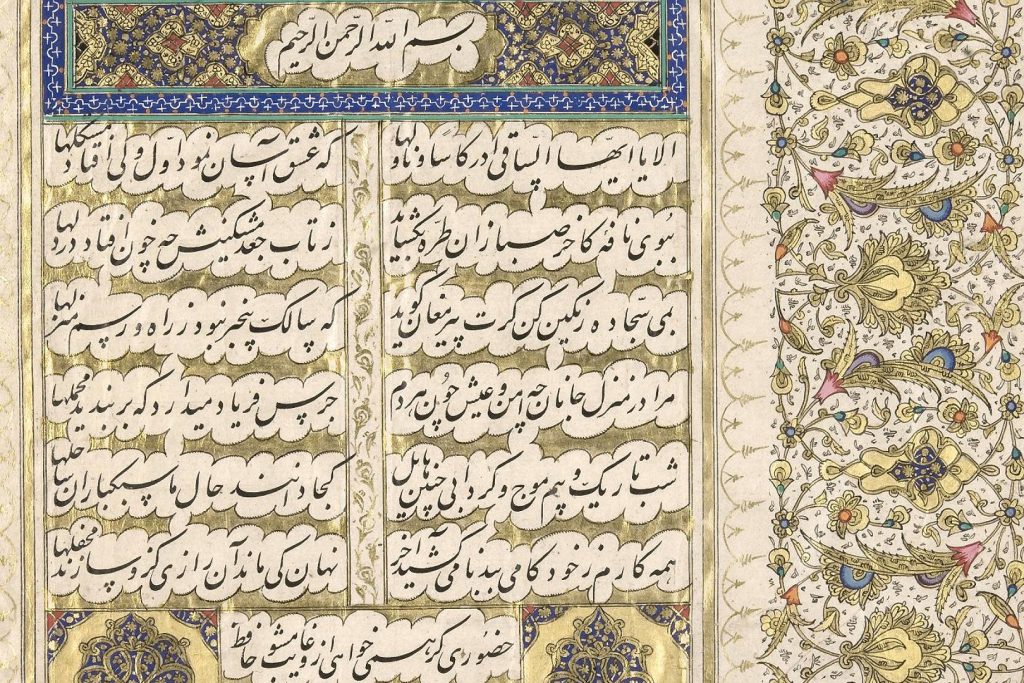 بسم الله الرحمن الرحیم
الا یا ایّها السّاقی ادر کاسا و ناولها که عشق آسان نمود اوّل ولی افتاد مشکلها
ببوی نافهٔ کاخر صبا زان طرّه بگشاید ز تاب جعد مشکینش چه خون افتاد در دلها
بمی سجّاده رنگین کن گرت پیر مغان گوید که سالک بیخبر نبود ز راه و رسم منزلها
مرا در منزل جانان چه امن و عیش چون هر دم جرس فریاد میدارد که بربندید محملها
شب تاریک و بیم موج و گردابی چنین هایل کجا دانند حال ما سبکباران ساحلها
همه کارم ز خود کامی ببدنامی کشید آخر نهان کی ماند آن رازی کزو سازند محفلها
حضوری گر همی خواهی ازو غایب مشو حافظ